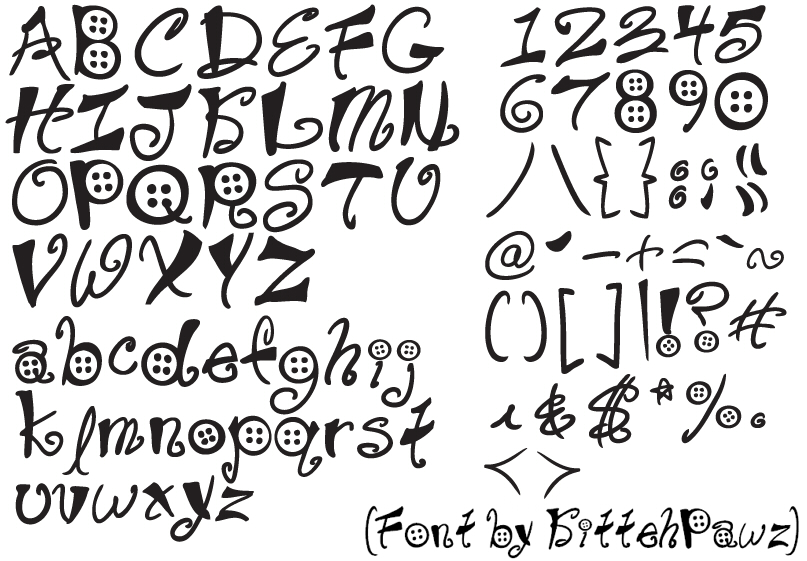 ABCDEFG
HIJKLMN
OPQRSTU
VWXYZ
abcdefghij
klmnopqrst
uvwxyz
12345
67890
/\{}:;"
@'-+=`~
()[]|!?#
,&$*%.
<>
(Font by KittehPawz)